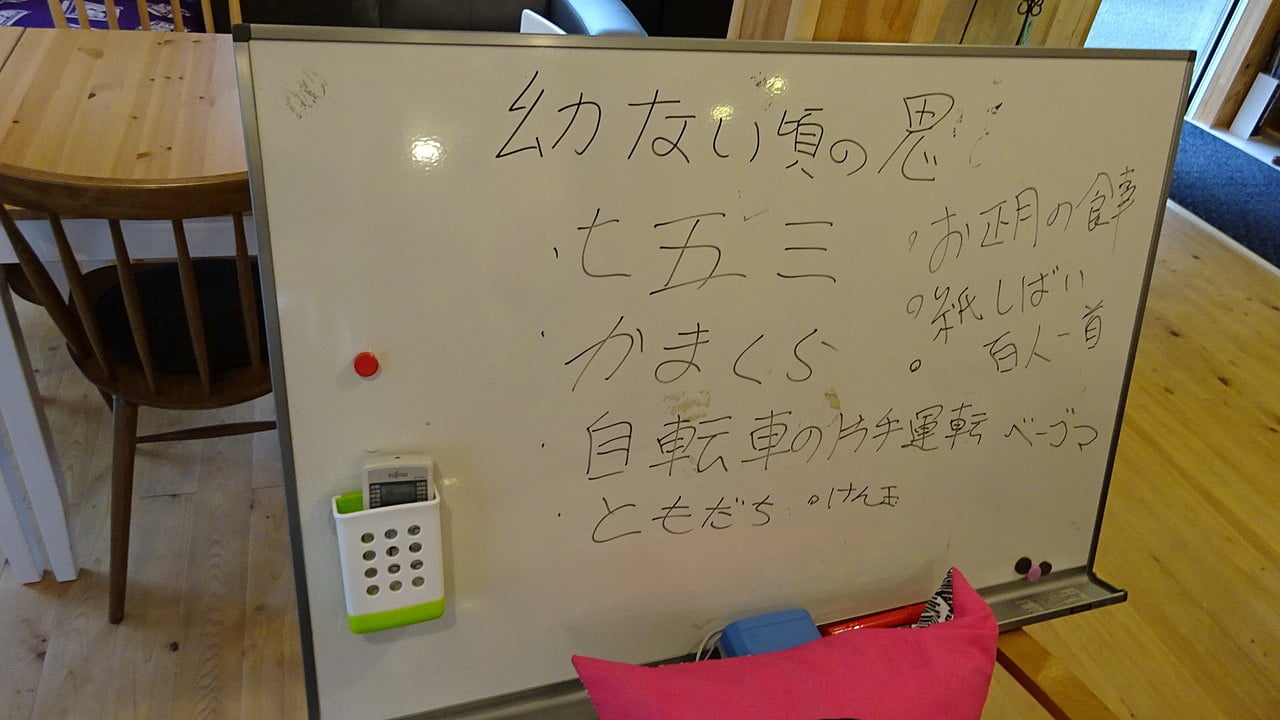 幼ない頃の思
・七五三
・かまくら
・自転車の片手運転
・ともだち
。お正月の
。紙しばい
。百人一首
ベーゴマ
。けん玉
FUJITSU